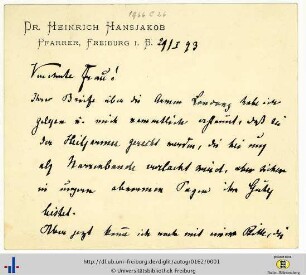 1966 C 26
DR. HEINRICH HANSJAKOB
PFARRER, FREIBURG I. B. 29/I 93
Verehrte Frau!
Ihre Briefe über die Armen Londons habe ich
gelesen u. mich namentlich erfreut, daß sie
der Heilsarmee gerecht werden, die bei uns
als Narrenbande verlacht wird, aber sicher
in unsern abnormen Tagen ihr Gutes
leistet.
Aber jetzt komme ich noch mit einer Bitte, die
http://dl.ub.uni-freiburg.de/diglit/autogr0162/0001
© Universitätsbibliothek Freiburg